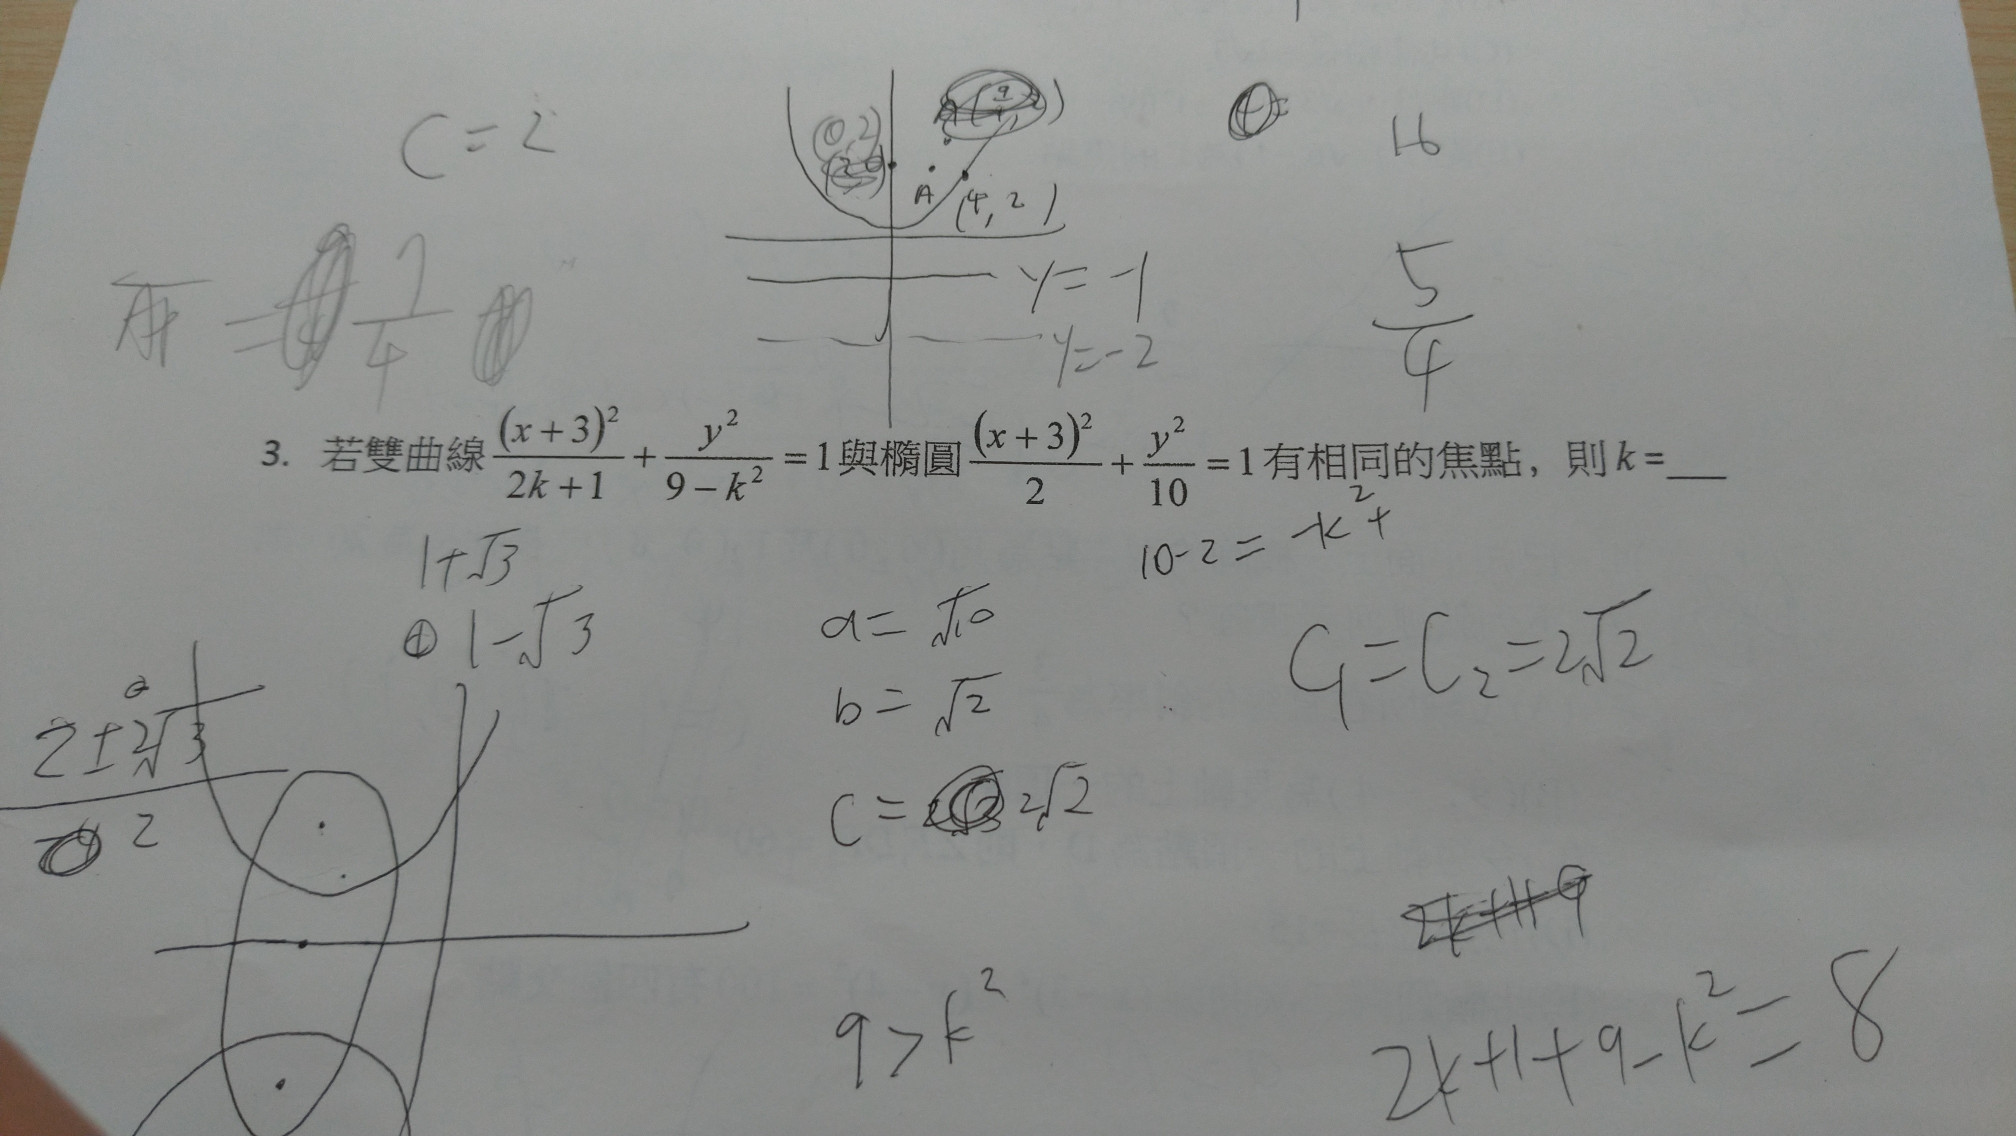 C = 2
(0,2)
A
(4, 2)
16
y = -1
y = -2
AF = 7/4
5/4
3. 若雙曲線 (x+3)²/(2k+1) + y²/(9-k²) = 1 與橢圓 (x+3)²/2 + y²/10 = 1 有相同的焦點，則 k = __
10-2 = -k²+
1+√3
1-√3
a = √10
b = √2
c = 2√2
C₁ = C₂ = 2√2
2±2√3
2
9 > k²
2k+1+9-k² = 8